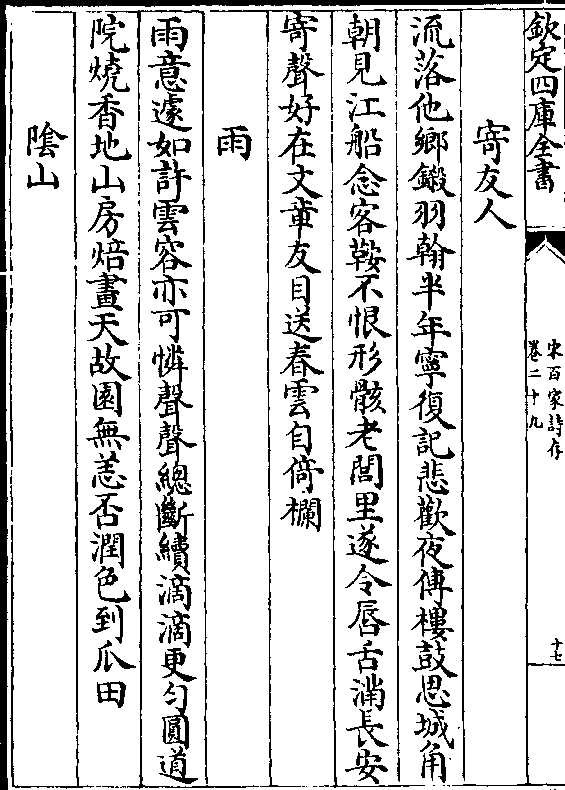 欽定四庫全書
宋百家詩存
卷二十九
十七
寄友人
流落他鄉鍛羽翰半年寧復記悲歡夜傳樓鼓思城角
朝見江船念客鞍不恨形骸老閭里遂令唇舌滿長安
寄聲好在文章友目送春雲自倚欄
雨
雨意遽如許雲容亦可憐聲聲總斷續滴滴更匀圓道
院燒香地山房焙畫天故園無恙否潤色到瓜田
隂山